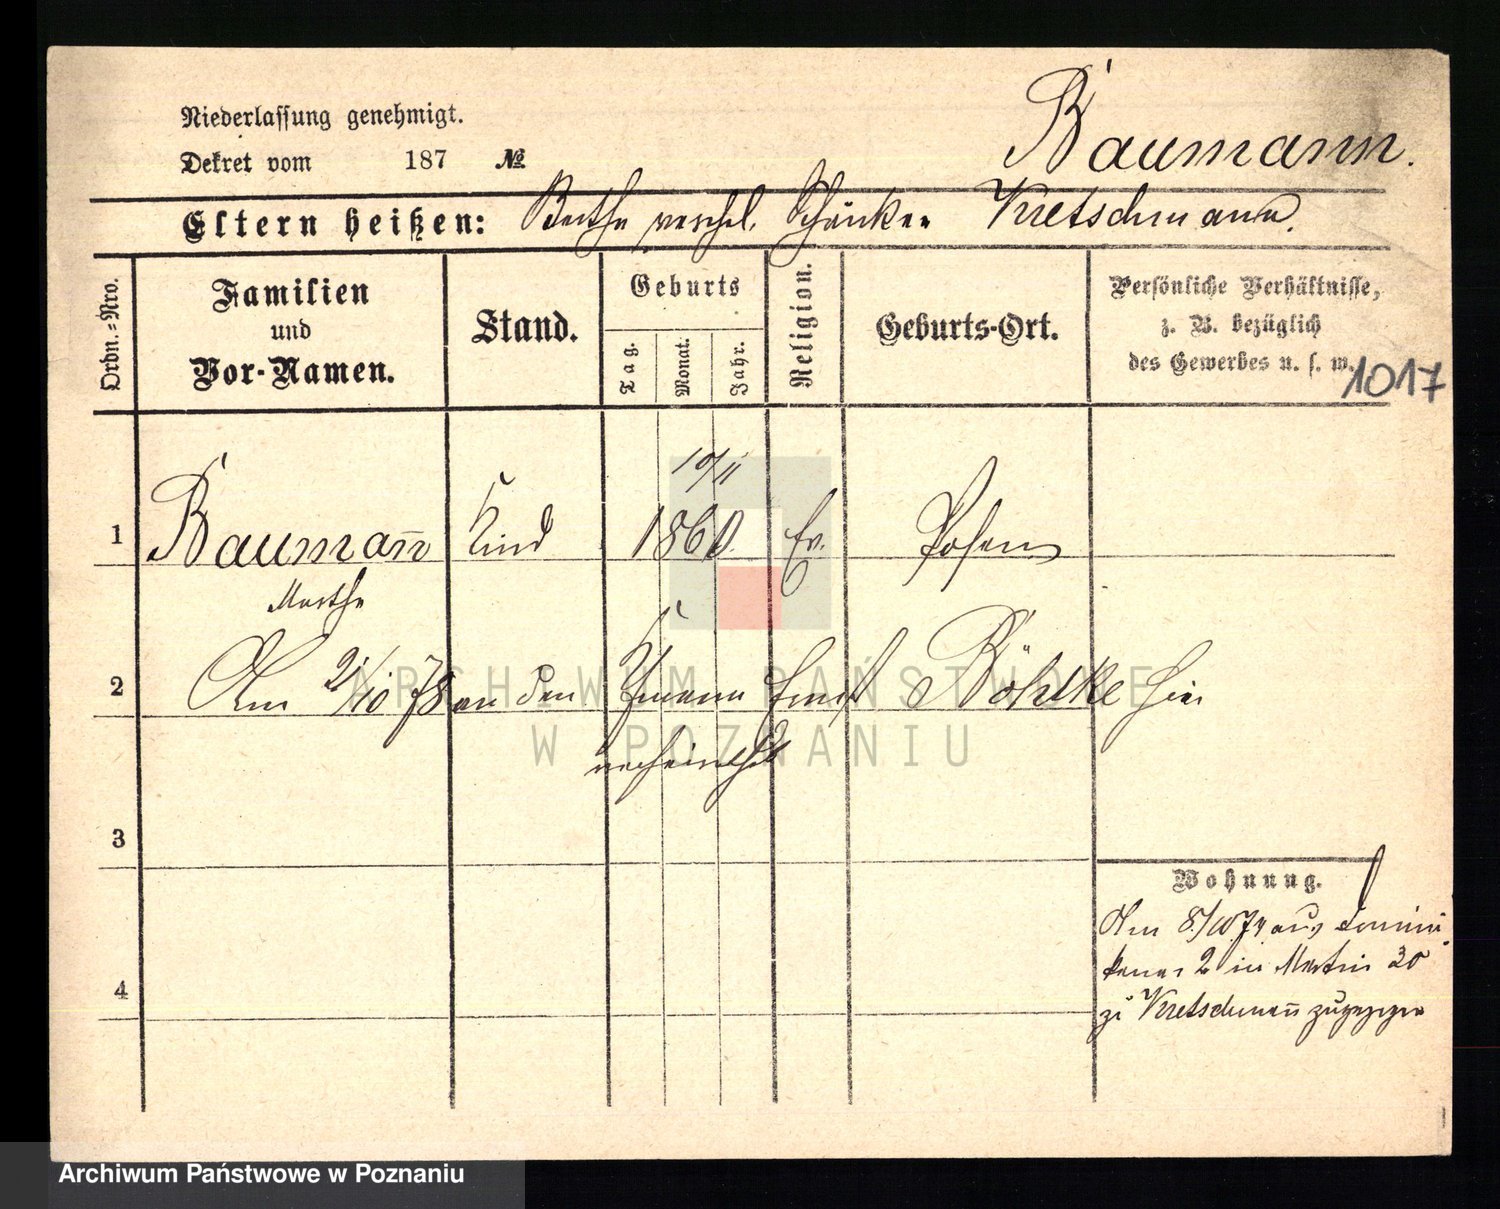 Baumann.
Niederlassung genehmigt.
Dekret vom 187 №
Eltern heißen: Berthe verehel. Schänker Kretschmann.
Ordn.=Nro.
Familien
und
Vor-Namen.
Stand.
Geburts
Tag.
Monat.
Jahr.
Religion.
Geburts-Ort.
Persönliche Verhältnisse,
z. B. bezüglich
des Gewerbes u. s. w.
1017
10/11
1 Baumañ Kind 1860. Ev. Posen
Marthe
2 Am 2/10 78 an den Ernst Böhlke hier
verheirathet
3
Wohnung.
Am 8/10 74 aus Domini
kaner 2 in Martin 30
zu Kretschmañ zugezogen
4
ARCHIWUM PAŃSTWOWE
W POZNANIU
Archiwum Państwowe w Poznaniu